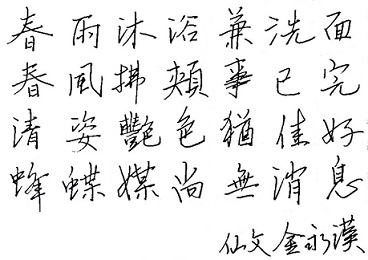 春雨沐浴兼洗面
春風拂頰事已完
清姿艷色猶佳好
蜂蝶媒尚無消息
仙文金永漢